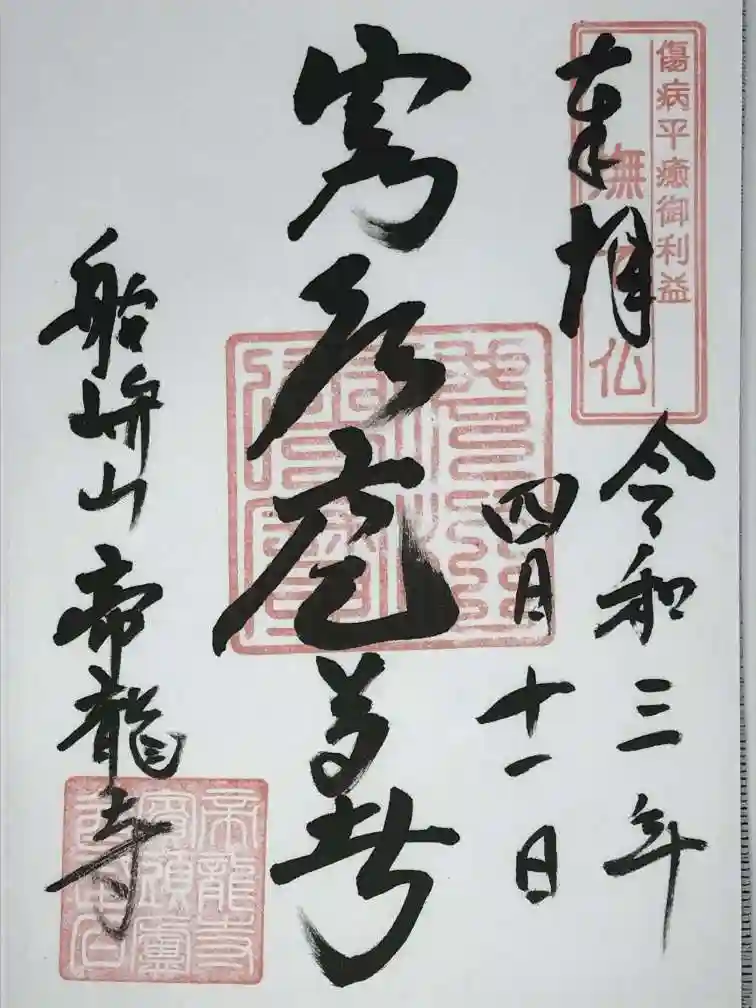 傷病平癒御利益
撫で仏
奉拝
令和三年
四月十一日
賓頭盧尊者
船峅山帝龍寺
帝龍寺
賓頭盧